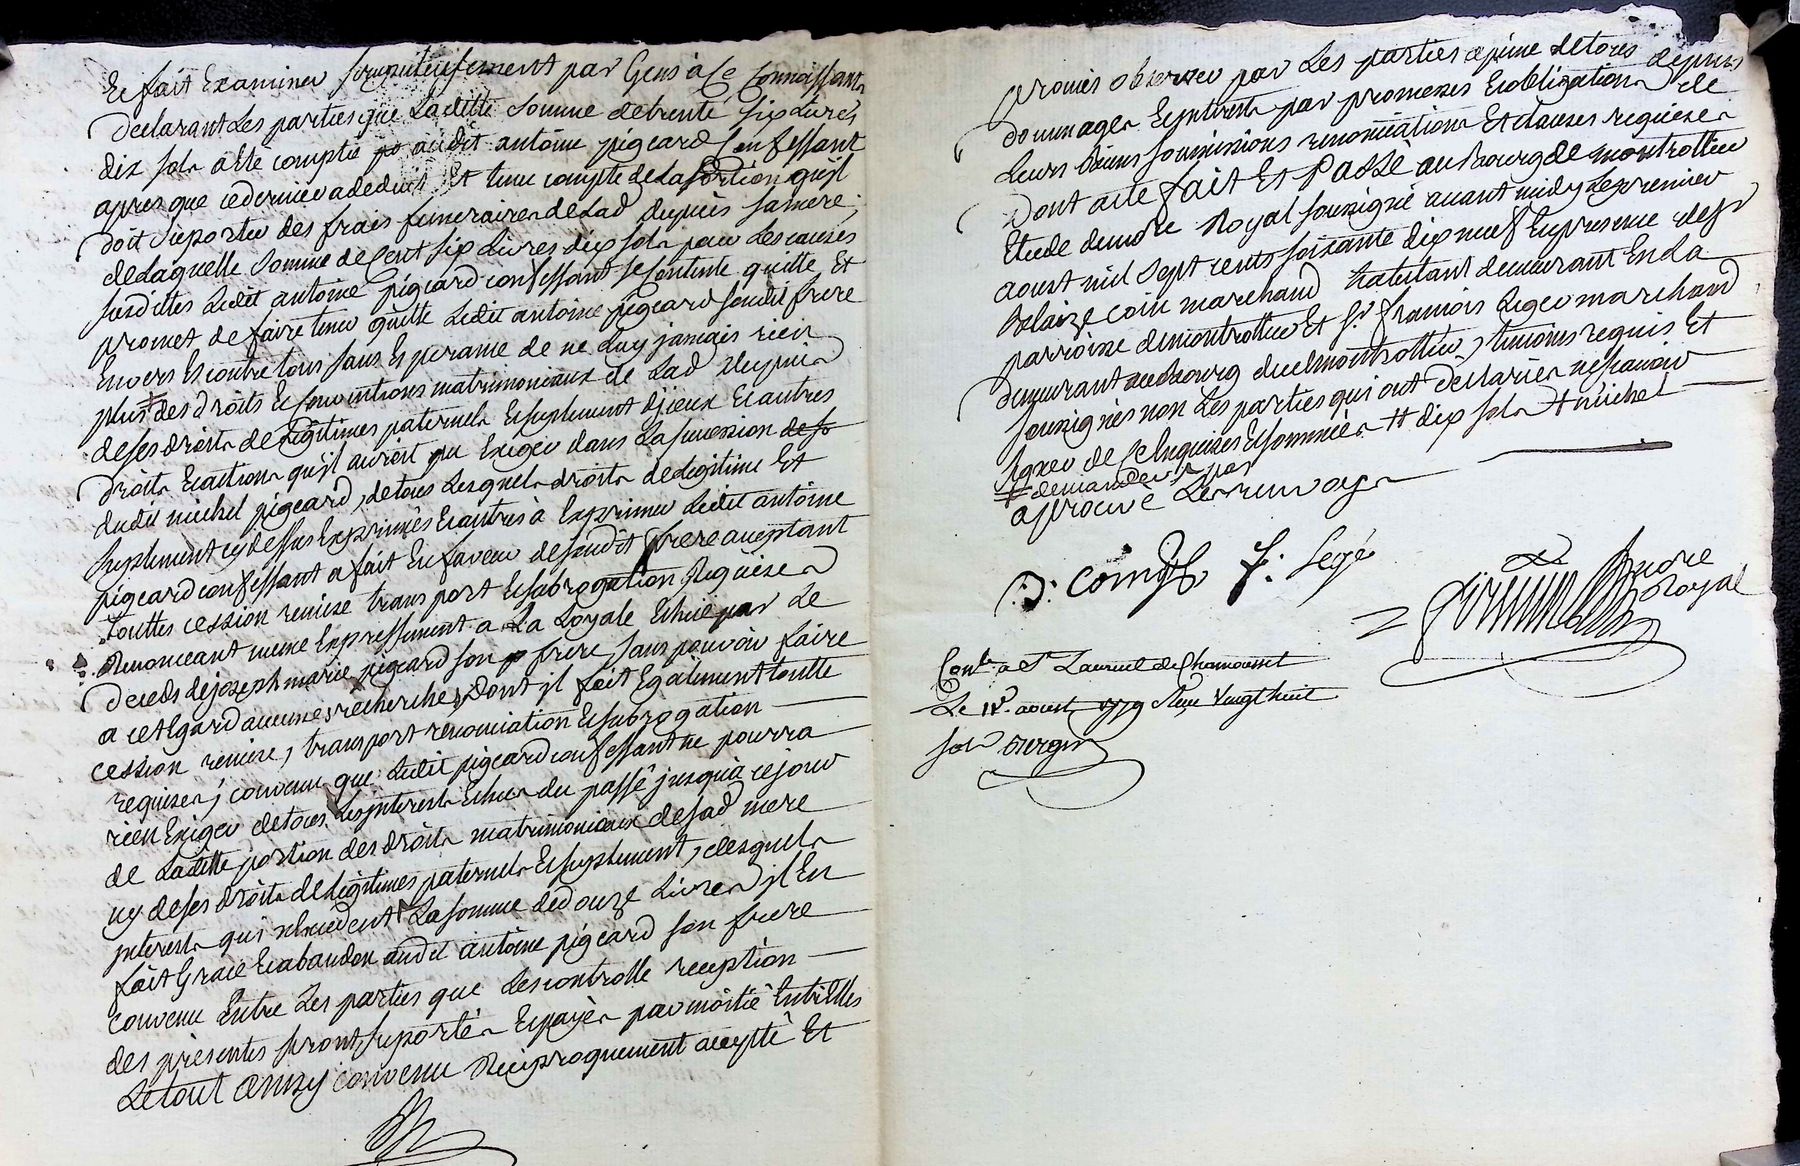 Et fait Examiner scrupuleusement par Gens à Ce Connaissant
Declarant Les parties que Ladette Somme de trente six Livres
dix sols a été comptée audit antoine pigeard Confessant
apres que cedernier a deduit Et tenu compte de La portion qu'il
doit suporter des frais funeraires de Lad depuis sa mere;
de Laquelle Somme de Cent six Livres dix sols pour Les causes
susdittes Ledit antoine pigeard confessant se Contente quitte Et
promet de faire tenir quitte Ledit antoine pigeard sondit frere
Envers Et contre tous sans Esperance de ne Luy jamais rien
plus # des droits Et Conventions matrimoniaux de Lad Depuis
de ses droits de Legitimes paternels Et suplement d'jceux Et autres
droits Et actions qu'il auroit pu Exiger dans La succession de so
dudit michel pigeard, de tous Lesquels droits de Legitime Et
suplement cy dessus Exprimés Et autres à Exprimer Ledit antoine
pigeard confessant a fait En faveur de sondit frere acceptant
Touttes cession remise transport Et subrogation Requises
Renonceant meme Expressement a La Loyale Echue par Le
Deceds de joseph marie pigeard son frere sans pouvoir faire
a cet Egard aucunes recherches, dont il fait Egalement toutte
cession remise, transport renonciation Et subrogation
requises; convenu que Ledit pigeard confessant ne pourra
rien Exiger de tous Les jnterests Echus du passé jusqu'à ce jour
de Laditte portion des droits matrimoniaux de sad mere
ny de ses droits de Legitimes paternels Et suplement, desquels
jnterests qui Excedent La somme de douze Livres il En
fait Grace Et abandon audit antoine pigeard son frere
convenu Entre Les parties que Les controlle reception
des presentes seront suportés Et payés par moitié Entr'Elles
Le tout ainsy convenu Reciproquement accepté Et
promis observer par Les parties a peine de tous depens
dommages Et jnterests par promesses Et obligations de
Leurs biens soumissions renonciations Et clauses requises
Dont acte fait Et Passé au Bourg de montrottier
Etude du notre Royal soussigné avant midy Le premier
aoust mil sept cents soixante dix neuf En presence de sr
Blaize coin marchand habitant demeurant En La
parroisse de montrottier Et Sr. francois Leger marchand
demeurant au Bourg dudmontrottier, temoins requis Et
soussignés non Les parties qui ont declarées ne scavoir
signer de Ce Enquises Et sommées # dix sols # michel
# demander ny pas
approuve Les renvoys
B: coing F: Legé
notre
Royal
Conle. a St. Laurent de Chamousset
Le 12. aoust 1779 Reçu Vingt huit
sols